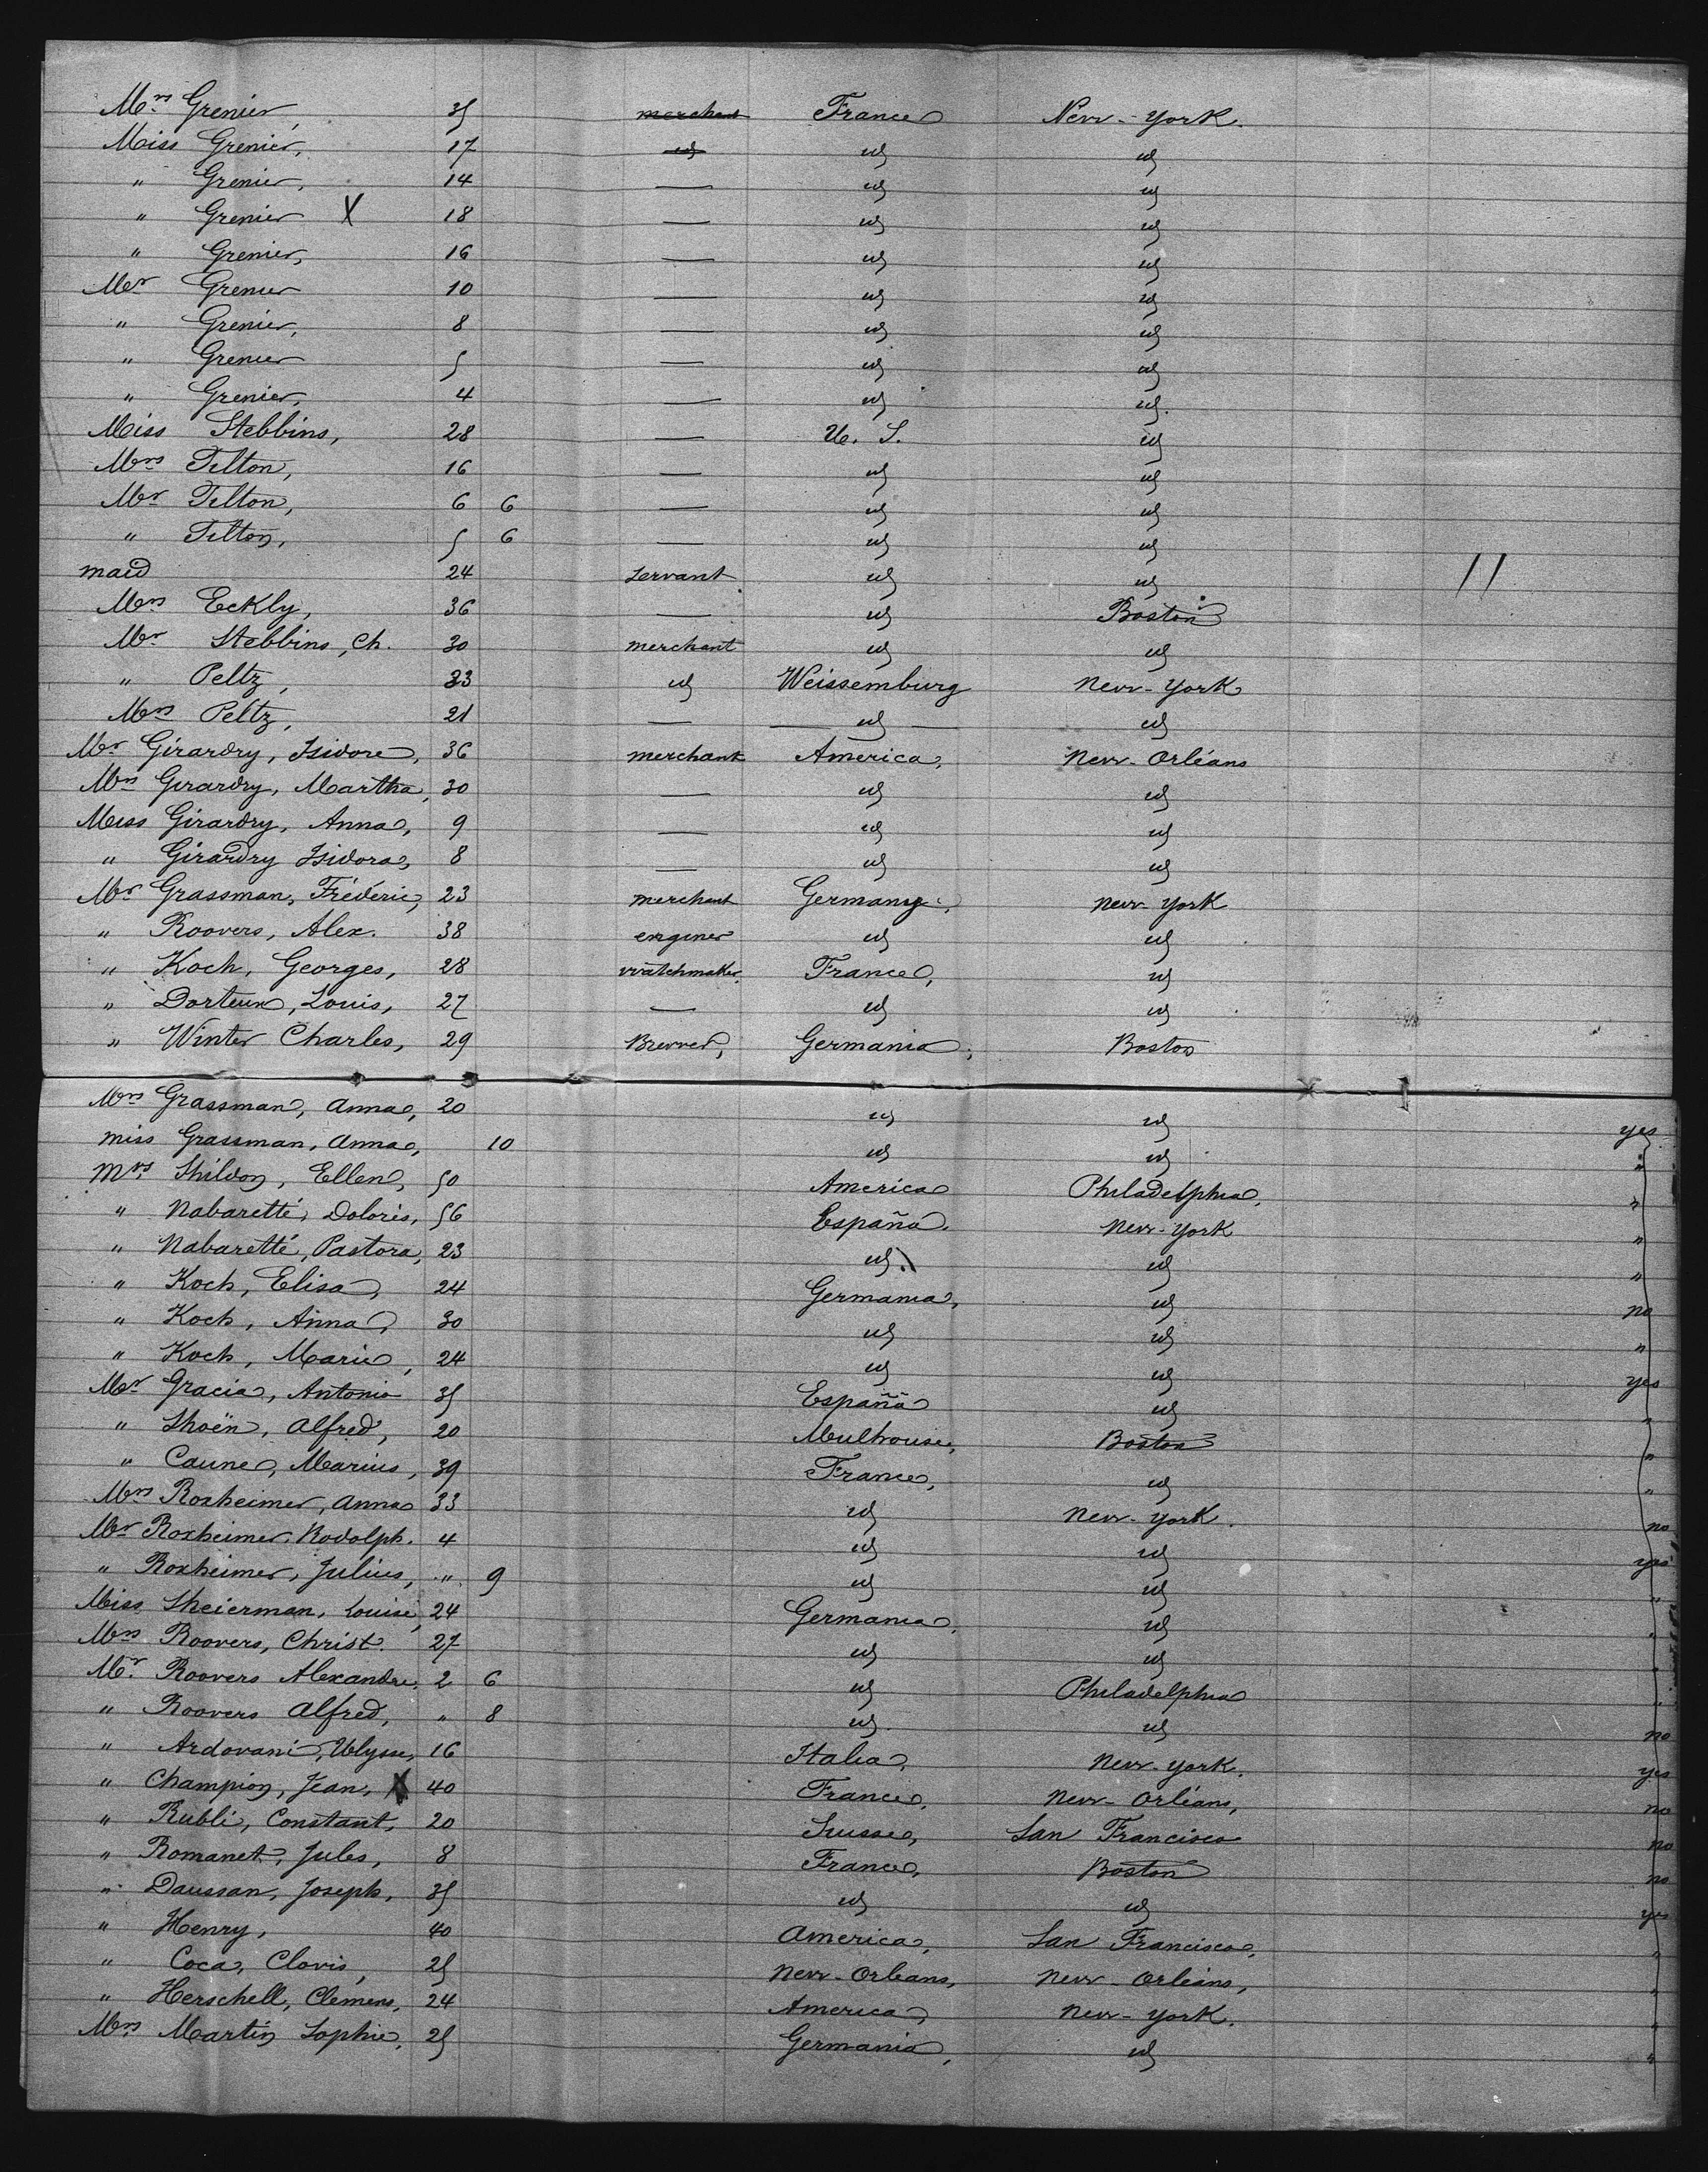 Mrs Grenier, 35 merchant France New-York.
Miss Grenier, 17 id id id
" Grenier, 14 — id id
" Grenier X 18 — id id
" Grenier, 16 — id id
Mr Grenier 10 — id id
" Grenier, 8 — id id
" Grenier 5 — id id
" Grenier, 4 — id id.
Miss Stebbins, 28 — U. S. id
Mrs Tilton, 16 — id id
Mr Tilton, 6 6 — id id
" Tilton, 5 6 — id id
maid 24 servant id id 11
Mrs Eckly, 36 — id Boston
Mr Stebbins, Ch. 30 merchant id id
" Peltz, 23 id Weissemburg New-York
Mrs Peltz, 21 — id id
Mr Girardry, Isidore, 36 merchant America, New-Orléans
Mrs Girardry, Martha, 30 — id id
Miss Girardry, Anna, 9 — id id
" Girardry Isidora, 8 — id id
Mr Grassman, Fréderic, 23 merchant Germany, New-York
" Roovers, Alex. 38 enginer id id
" Koch, Georges, 28 watchmaker, France, id
" Dorteux, Louis, 27 — id id
" Winter Charles, 29 Brewer, Germania, Boston
Mrs Grassman, Anna, 20 id id yes
Miss Grassman, Anna, 10 id id "
Mrs Shildon, Ellen, 50 America Philadelphia, "
" Nabaretté, Dolorès, 56 España. New-York "
" Nabaretté, Pastora, 23 id id "
" Koch, Elisa, 24 Germania, id no
" Koch, Anna, 30 id id "
" Koch, Marie, 24 id id yes
Mr Gracia, Antonio 35 España id "
" Shoën, Alfred, 20 Mulhouse, Boston "
" Caune, Marius, 39 France, id "
Mrs Roxheimer, Anna 33 id New-York. no
Mr Roxheimer, Rodolph. 4 id id yes
" Roxheimer, Julius, " 9 id id "
Miss Sheierman, Louise, 24 Germania, id "
Mrs Roovers, Christ. 27 id id "
Mr Roovers Alexandre, 2 6 id Philadelphia "
" Roovers Alfred, " 8 id. id no
" Ardovani, Ulysse, 16 Italia, New-York. yes
" Champion, Jean, X 40 France, New-Orléans, no
" Rubli, Constant, 20 Suisse, San Francisco no
" Romanet, Jules, 8 France, Boston no
" Daussan, Joseph, 35 id id yes
" Henry, 40 America, San Francisco, "
" Coca, Clovis, 25 New-Orleans, New-Orléans, "
" Herschell, Clemens, 24 America, New-York. "
Mrs Martin Sophie, 25 Germania, id "